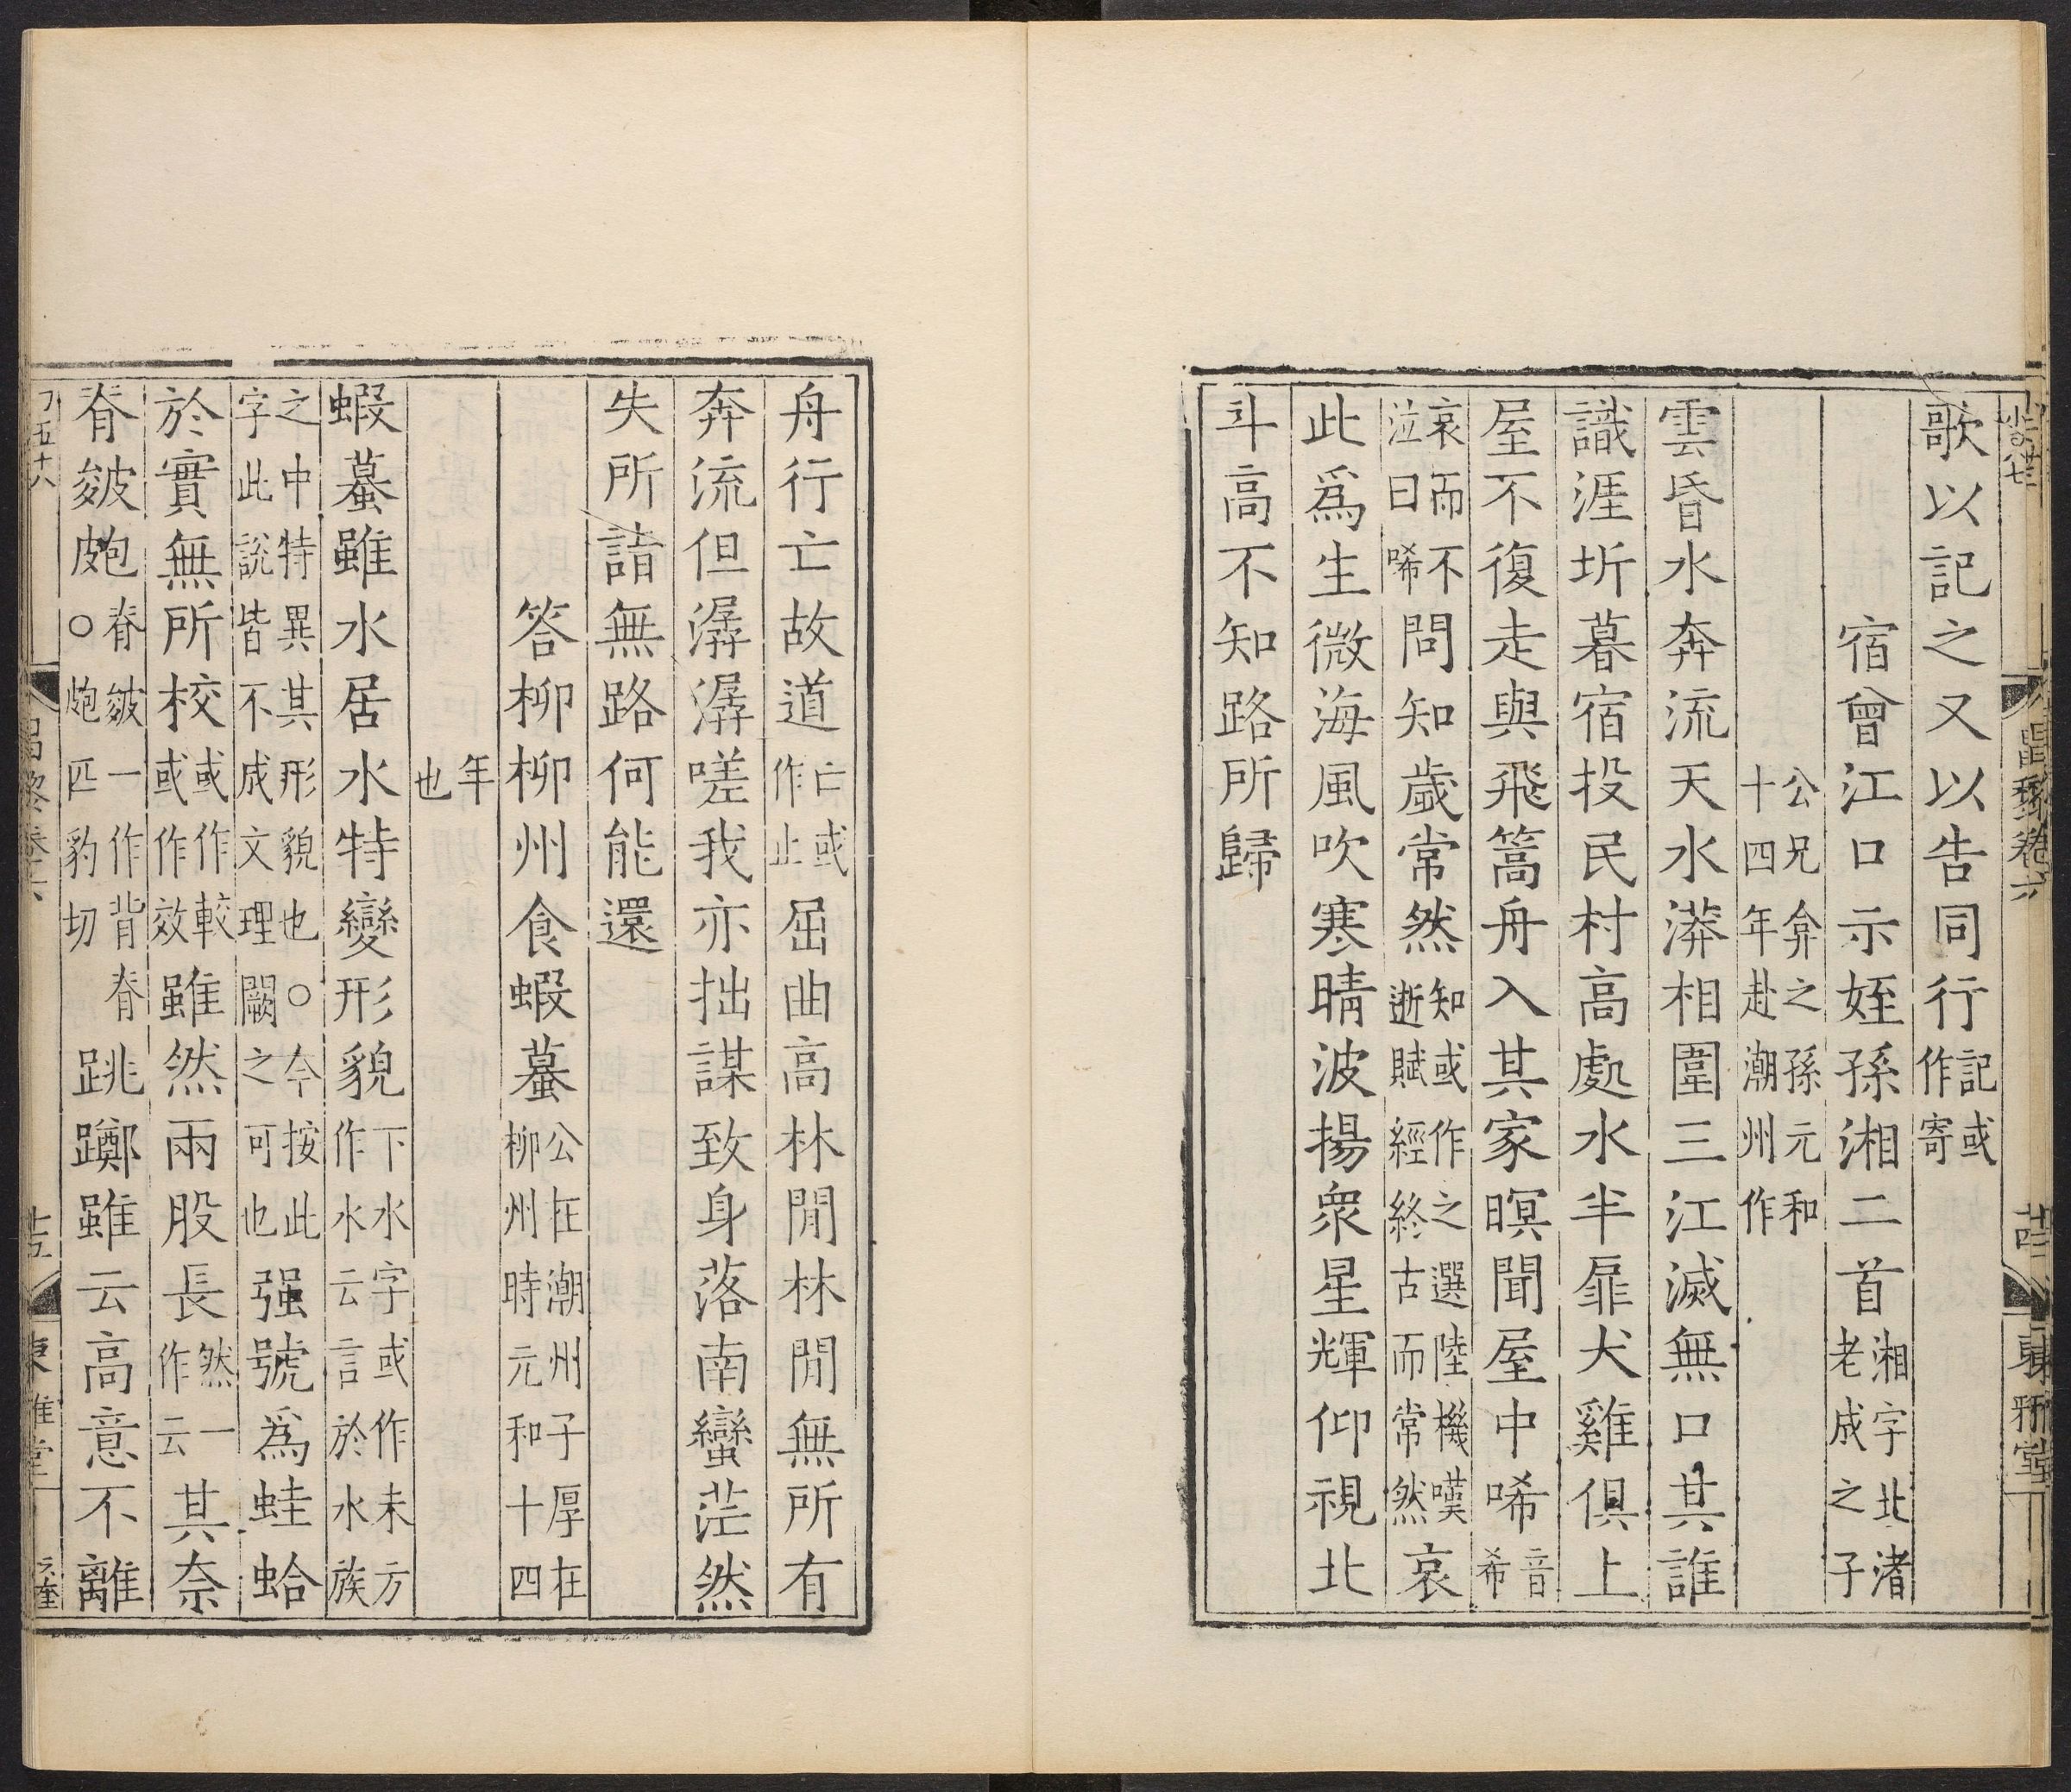 歌以記之又以告同行記或作寄
宿曾江口示姪孫湘二首湘字北渚老成之子
公兄弇之孫元和十四年赴潮州作
雲昏水奔流天水漭相圍三江滅無口其誰
識涯圻暮宿投民村高處水半扉犬雞俱上
屋不復走與飛篙舟入其家暝聞屋中唏音希
哀而不泣曰唏問知歲常然知或作之選陸機嘆逝賦經終古而常然哀
此爲生微海風吹寒晴波揚衆星輝仰視北
斗高不知路所歸
舟行亡故道亡或作止屈曲高林閒林閒無所有
奔流但潺潺嗟我亦拙謀致身落南蠻茫然
失所詣無路何能還
答柳柳州食蝦蟇公在潮州子厚在柳州時元和十四
年也
蝦蟇雖水居水特變形貌下水字或作未方作水云言於水族
之中特異其形貌也○今按此字此說皆不成文理闕之可也强號爲蛙蛤
於實無所校或作較或作效雖然兩股長然一作云其奈
脊皴皰脊皴一作背脊○皰匹豹切跳躑雖云高意不離